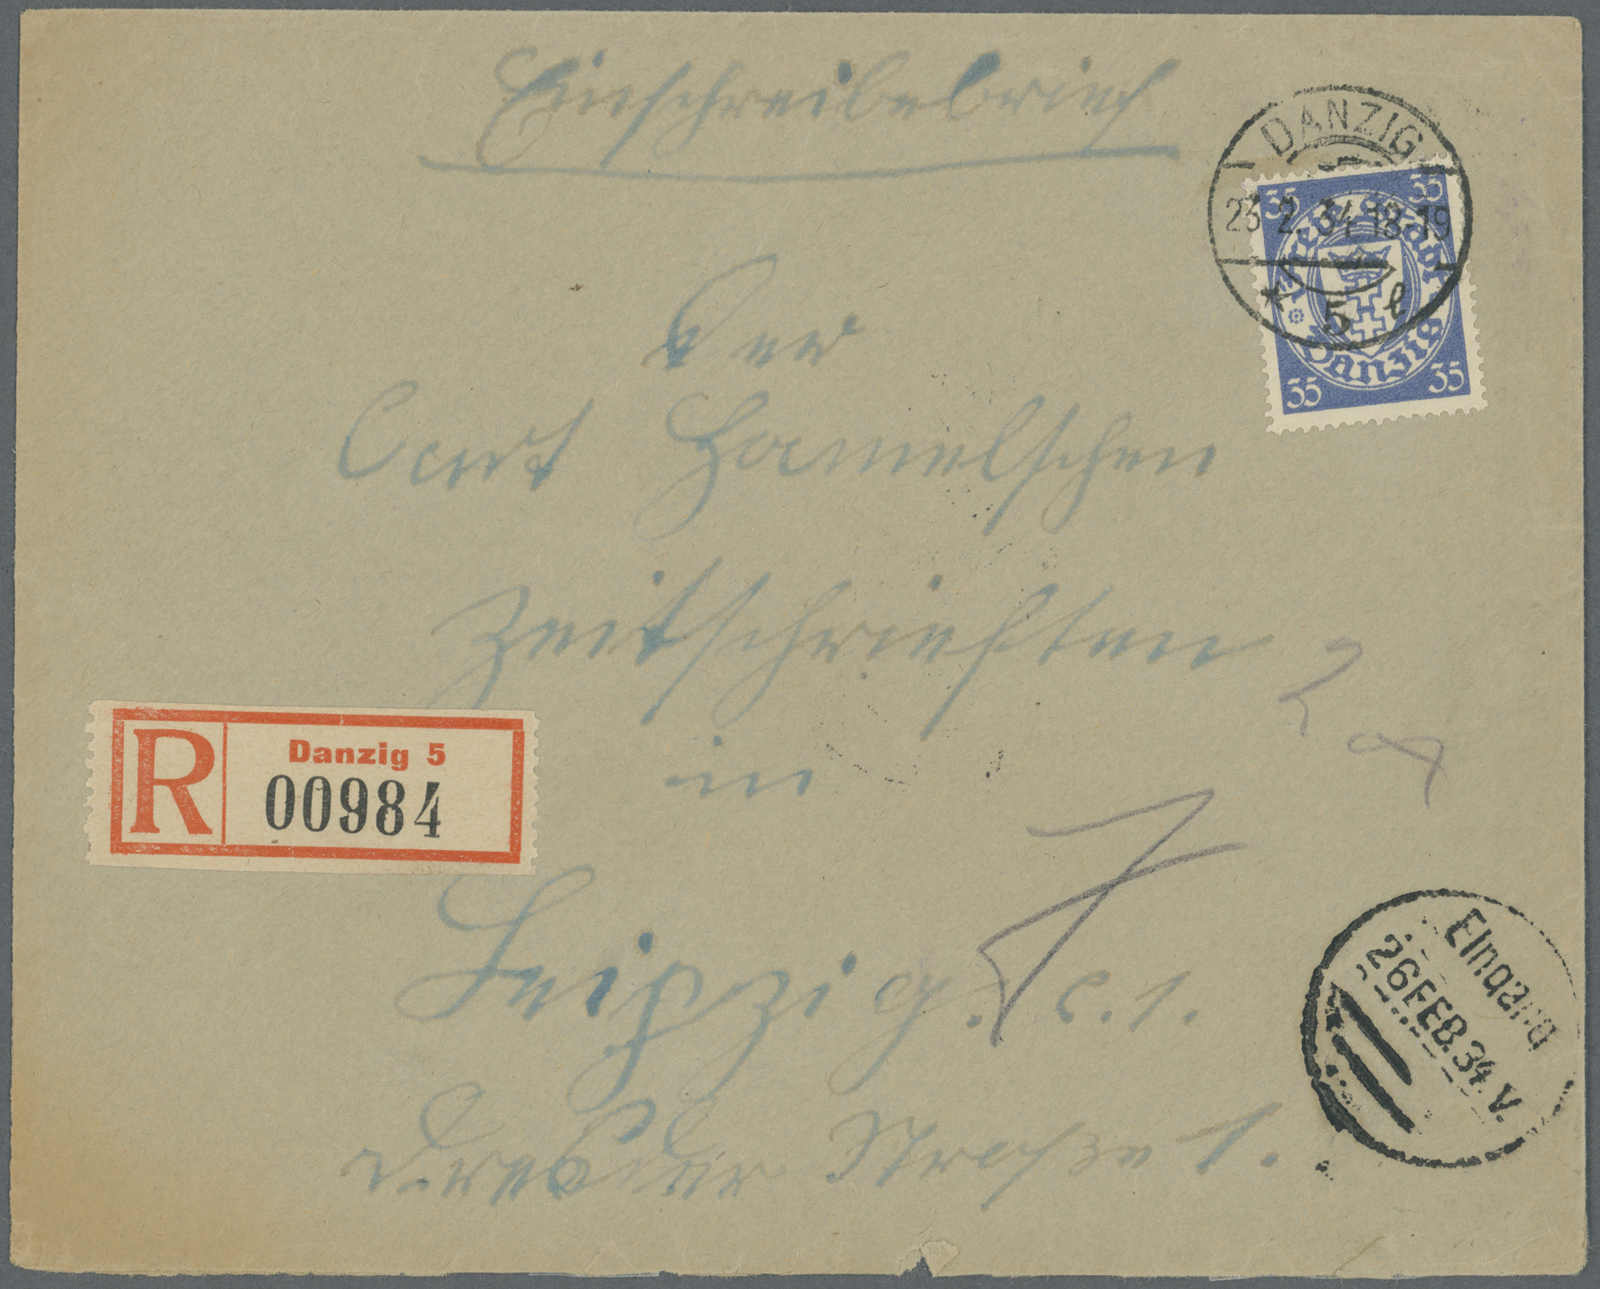 Einschreibebrief
DANZIG
23.2.34.18-19
* 5 l
35 35
Freie Stadt
Danzig
35 35
Der
Curt Hamelschen
Zeitschrieften
in
R Danzig 5
00984
Leipzig. C.1.
Dresdner Straße 1.
Eingang
26 FEB. 34 V.